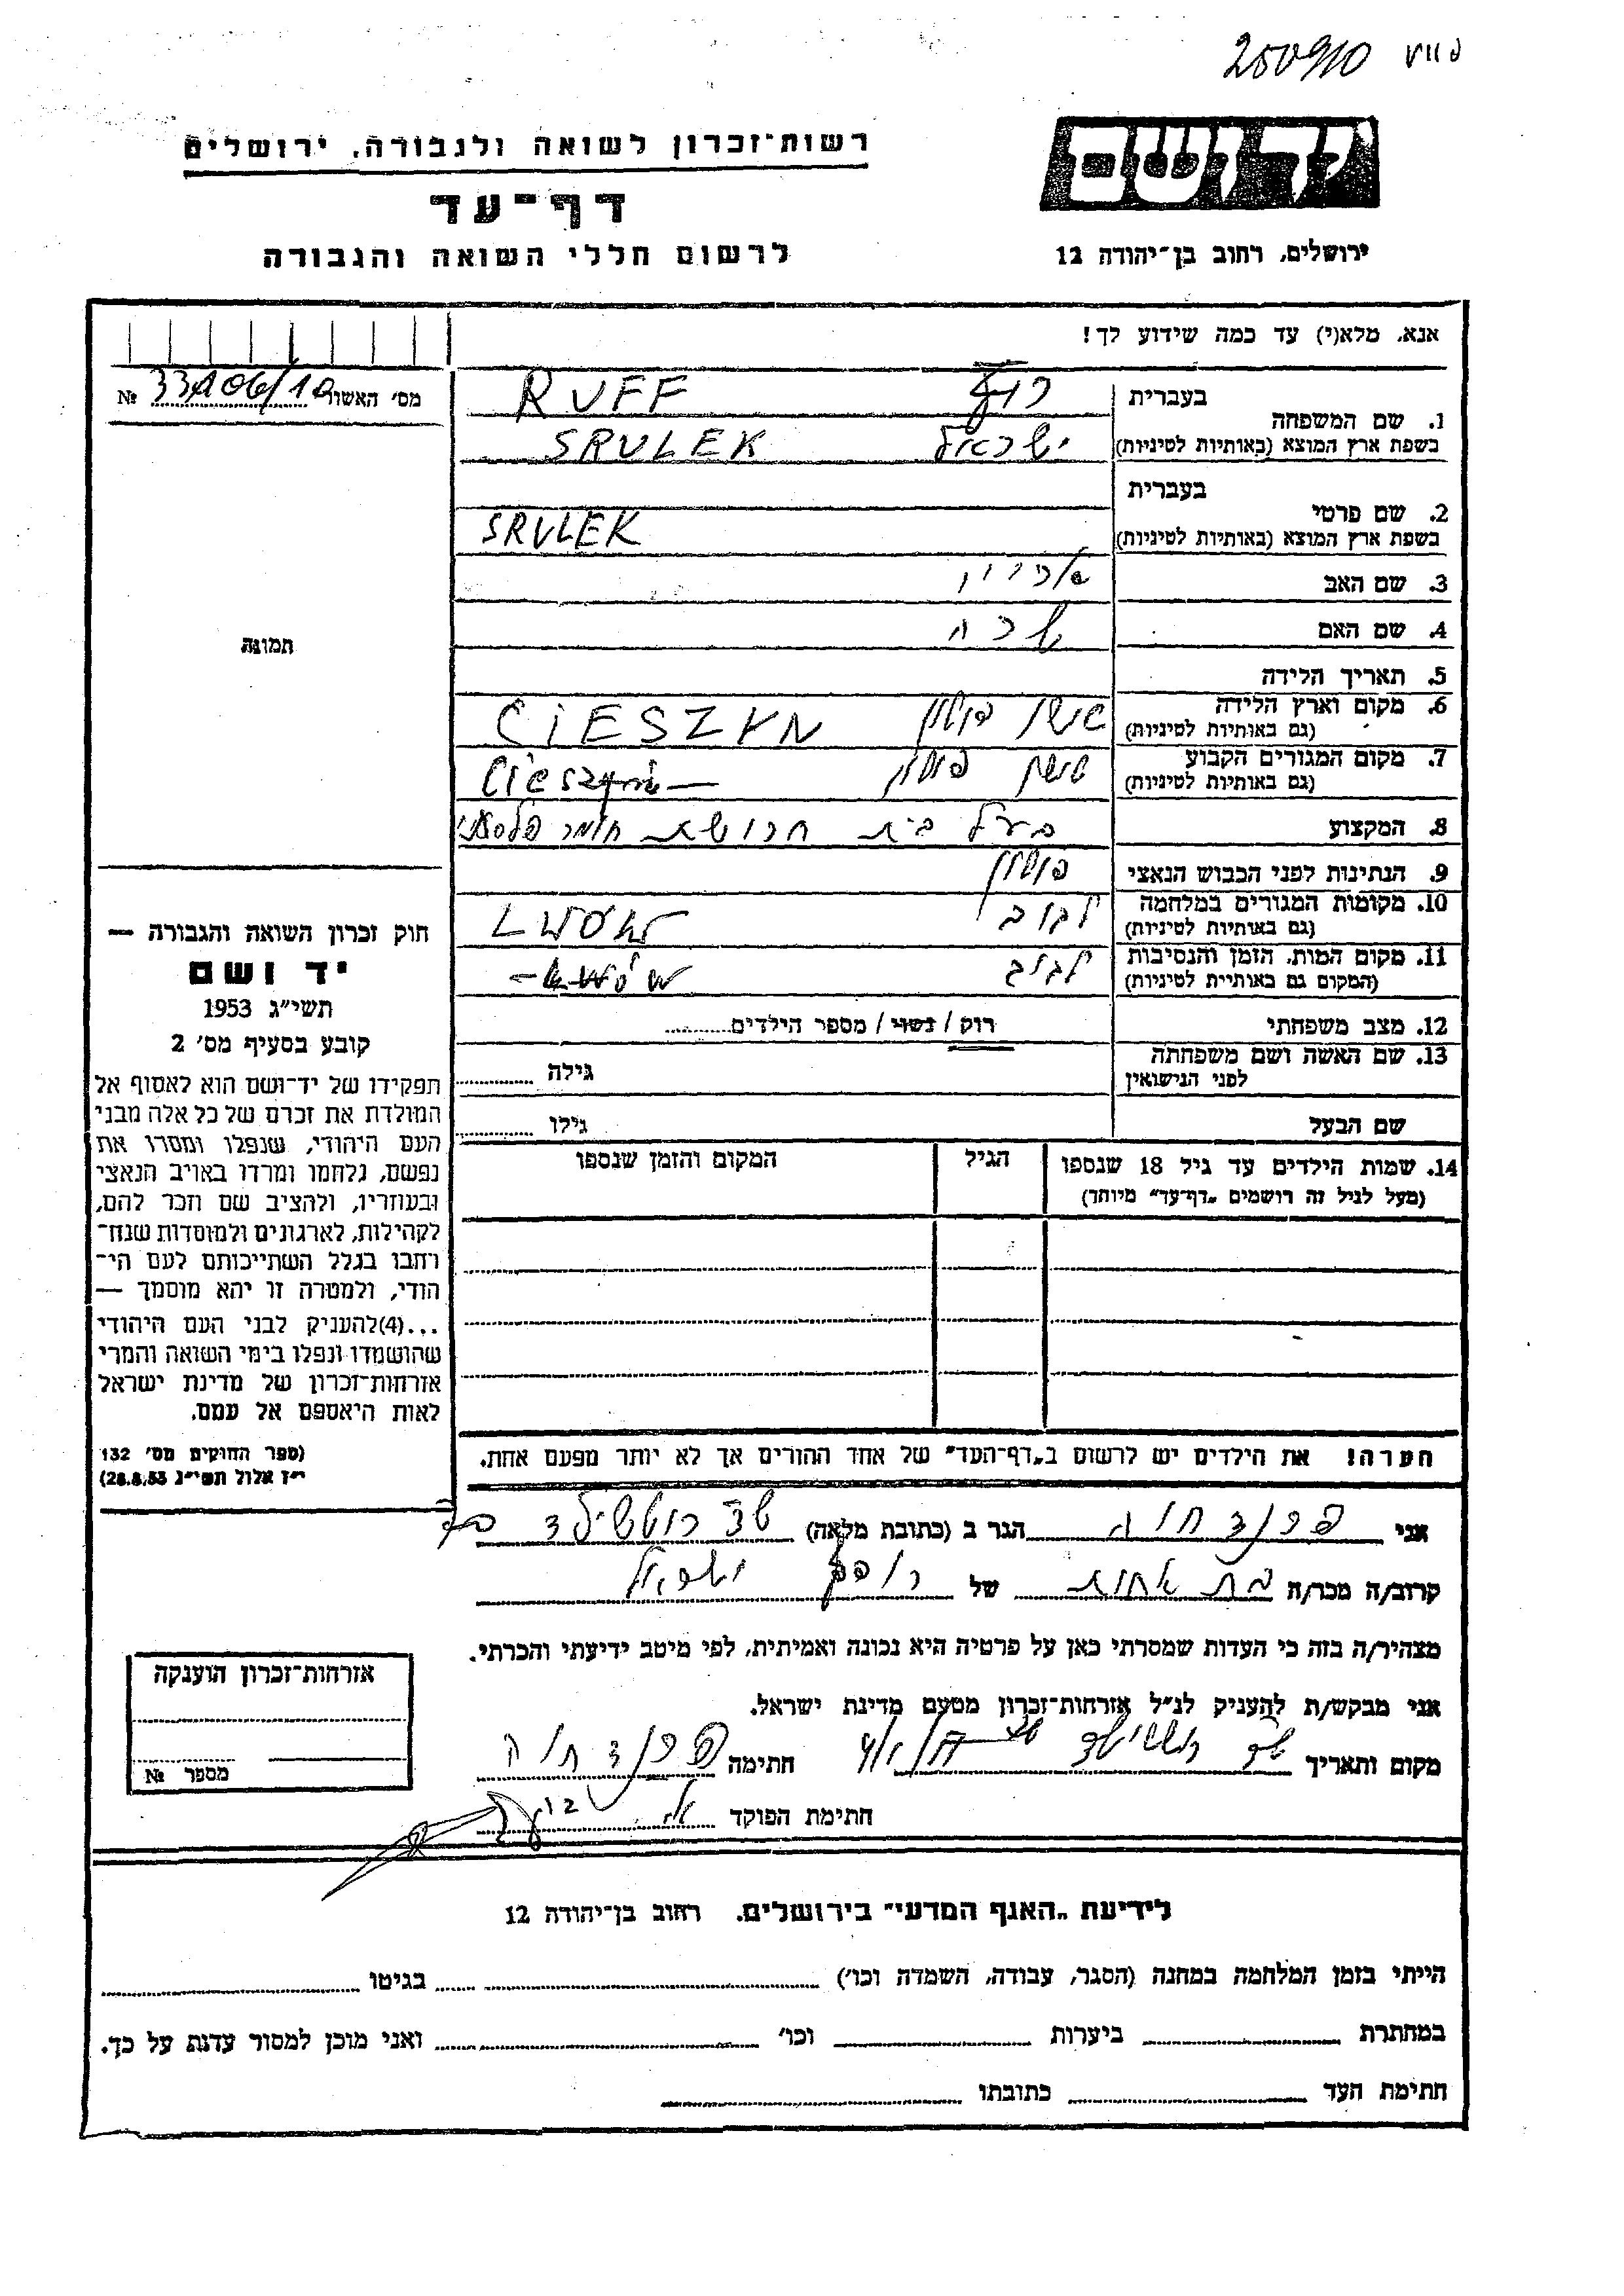 250910
רשות־זכרון לשואה ולגבורה. ירושלים
יד ושם
דף־עד
לרשום חללי השואה והגבורה
ירושלים. רחוב בן־יהודה 12
אנא. מלא(י) עד כמה שידוע לך!
מס׳ האשור № 33106/10
בעברית
1. שם המשפחה
בשפת ארץ המוצא (באותיות לטיניות)
RUFF
רוף
SRULEK
ישראל
בעברית
2. שם פרטי
בשפת ארץ המוצא (באותיות לטיניות)
SRULEK
3. שם האב
4. שם האם
שרה
תמונה
5. תאריך הלידה
6. מקום וארץ הלידה
(גם באותיות לטיניות)
פולין CIESZYN
7. מקום המגורים הקבוע
(גם באותיות לטיניות)
טשן פולין
8. המקצוע
בעל בית חרושת חומר פלסטי
9. הנתינות לפני הכבוש הנאצי
פולין
10. מקומות המגורים במלחמה
(גם באותיות לטיניות)
לבוב
11. מקום המות. הזמן והנסיבות
(המקום גם באותיית לטיניות)
לבוב
12. מצב משפחתי
רוק / נשוי / מספר הילדים
13. שם האשה ושם משפחתה
לפני הנישואין
גילה
שם הבעל
גילו
14. שמות הילדים עד גיל 18 שנספו
(מעל לגיל זה רושמים „דף־עד״ מיוחד)
הגיל
המקום והזמן שנספו
חוק זכרון השואה והגבורה —
יד ושם
תשי״ג 1953
קובע בסעיף מס׳ 2
תפקידו של יד־ושם הוא לאסוף אל
המולדת את זכרם של כל אלה מבני
העם היהודי, שנפלו ומסרו את
נפשם, נלחמו ומרדו באויב הנאצי
ובעוזריו, ולהציב שם וזכר להם,
לקהילות, לארגונים ולמוסדות שנח־
רחבו בגלל השתייכותם לעם הי־
הודי, ולמטרה זו יהא מוסמך —
...(4)להעניק לבני העם היהודי
שהושמדו ונפלו בימי השואה והמרי
אזרחות־זכרון של מדינת ישראל
לאות היאספם אל עמם.
(ספר החוקים מס׳ 132
י״ז אלול תשי״ג 28.8.53)
הערה! את הילדים יש לרשום ב„דף־העד״ של אחד ההורים אך לא יותר מפעם אחת.
אני חוה הגר ב (כתובת מלאה) רוטשילד
קרוב/ה מכר/ה בת אחות של ישראל
מצהיר/ה בזה כי העדות שמסרתי כאן על פרטיה היא נכונה ואמיתית. לפי מיטב ידיעתי והכרתי.
אני מבקש/ת להעניק לנ״ל אזרחות־זכרון מטעם מדינת ישראל.
מקום ותאריך חתימה חוה
חתימת הפוקד
אזרחות־זכרון הוענקה
מספר №
לידיעת „האגף המדעי״ בירושלים. רחוב בן־יהודה 12
הייתי בזמן המלחמה במחנה (הסגר, עבודה, השמדה וכו׳) בגיטו
במחתרת ביערות וכו׳ ואני מוכן למסור עדות על כך.
חתימת העד כתובתו